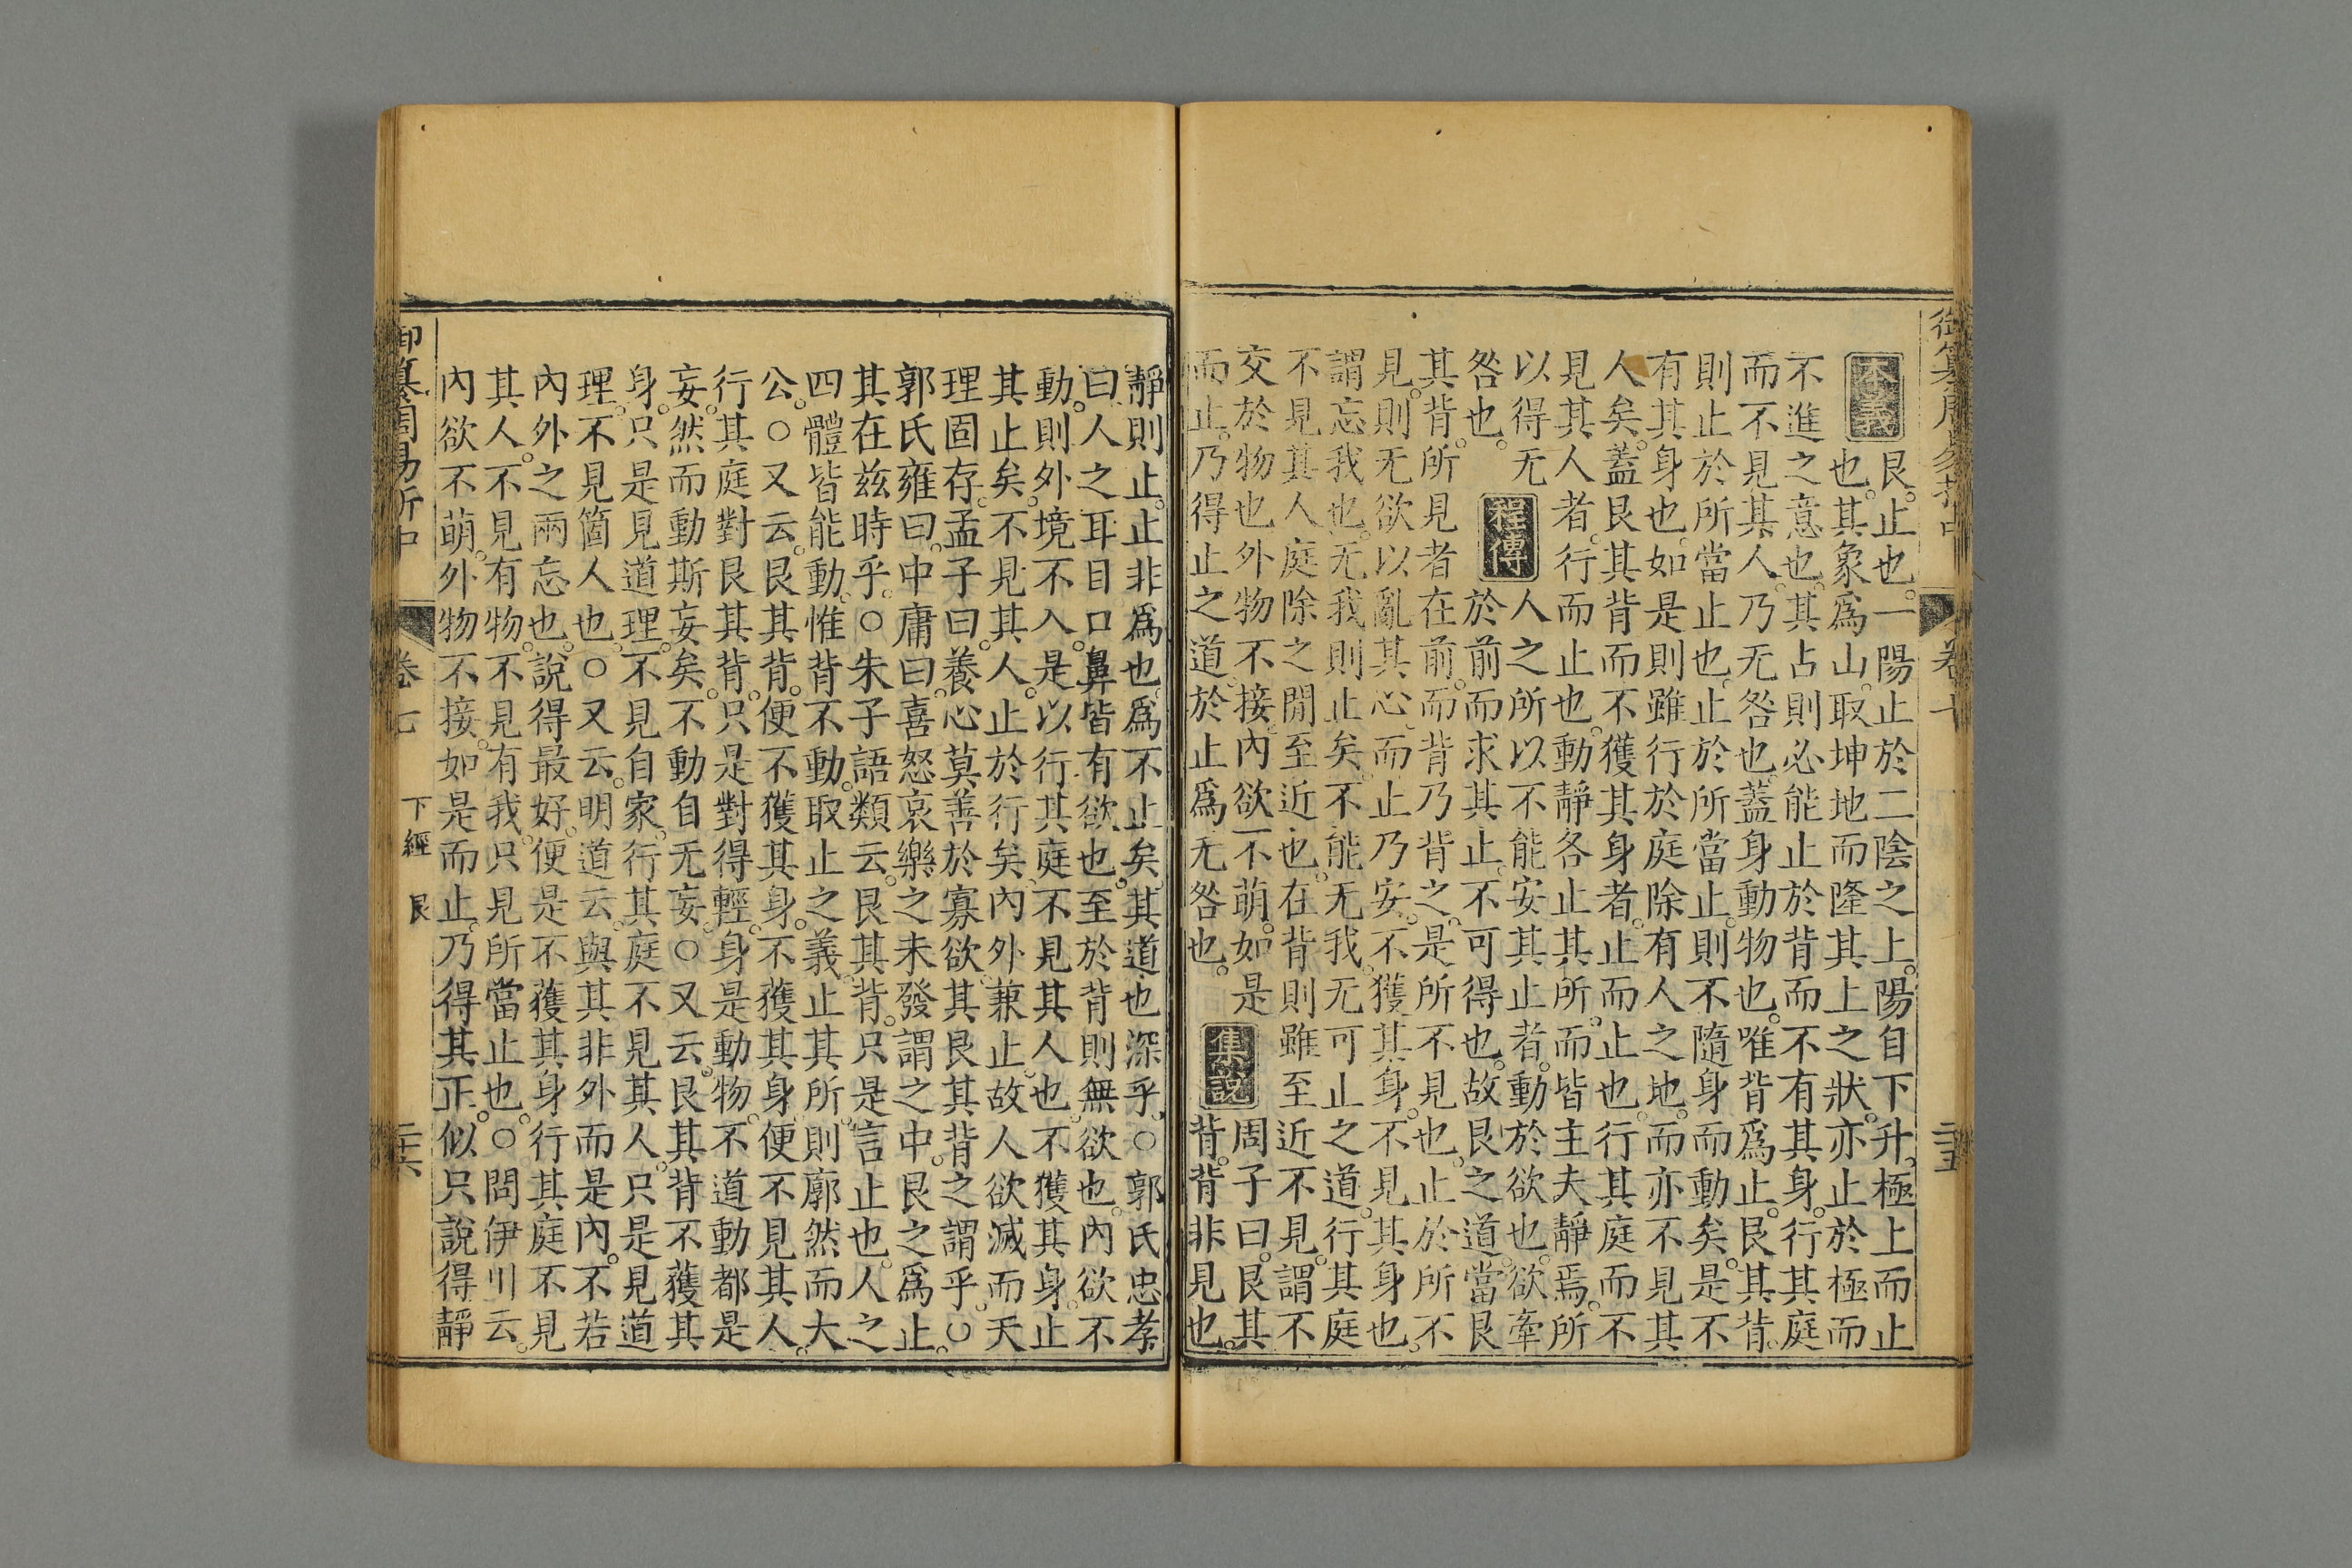 御纂周易折中 卷七 二十五
本義 艮。止也。一陽止於二陰之上。陽自下升。極上而止
也。其象爲山。取坤地而隆其上之狀。亦止於極而
不進之意也。其占則必能止於背而不有其身。行其庭
而不見其人。乃无咎也。蓋身動物也。唯背爲止。艮其背。
則止於所當止也。止於所當止。則不隨身而動矣。是不
有其身也。如是則雖行於庭除有人之地。而亦不見其
人矣。蓋艮其背而不獲其身者。止而止也。行其庭而不
見其人者。行而止也。動靜各止其所。而皆主夫靜焉。所
以得无
咎也。
程傳
人之所以不能安其止者。動於欲也。欲牽
於前而求其止。不可得也。故艮之道。當艮
其背。所見者在前。而背乃背之。是所不見也。止於所不
見。則无欲以亂其心。而止乃安。不獲其身。不見其身也。
謂忘我也。无我則止矣。不能无我。无可止之道。行其庭
不見其人。庭除之閒至近也。在背則雖至近不見。謂不
交於物也。外物不接。內欲不萌。如是
而止。乃得止之道。於止爲无咎也。
集說
周子曰。艮其
背。背非見也。
靜則止。止非爲也。爲不止矣。其道也深乎。○郭氏忠孝
曰。人之耳目口鼻皆有欲也。至於背則無欲也。內欲不
動。則外境不入。是以行其庭不見其人也。不獲其身。止
其止矣。不見其人。止於行矣。內外兼止。故人欲滅而天
理固存。孟子曰。養心莫善於寡欲。其艮其背之謂乎。○
郭氏雍曰。中庸曰。喜怒哀樂之未發謂之中。艮之爲止。
其在兹時乎。○朱子語類云。艮其背。只是言止也。人之
四體皆能動。惟背不動。取止之義。止其所。則廓然而大
公。○又云。艮其背。便不獲其身。不獲其身便不見其人。
行其庭對艮其背。只是對得輕。身是動物。不道動都是
妄。然而動斯妄矣。不動自无妄。○又云。艮其背不獲其
身。只是見道理。不見自家。行其庭不見其人。只是見道
理。不見箇人也。○又云。明道云。與其非外而是內。不若
內外之兩忘也。說得最好。便是不獲其身行其庭不見
其人。不見有物。不見有我。只見所當止也。○問伊川云。
內欲不萌。外物不接。如是而止。乃得其正。似只說得靜
御纂周易折中 卷七 下經 艮 二十六